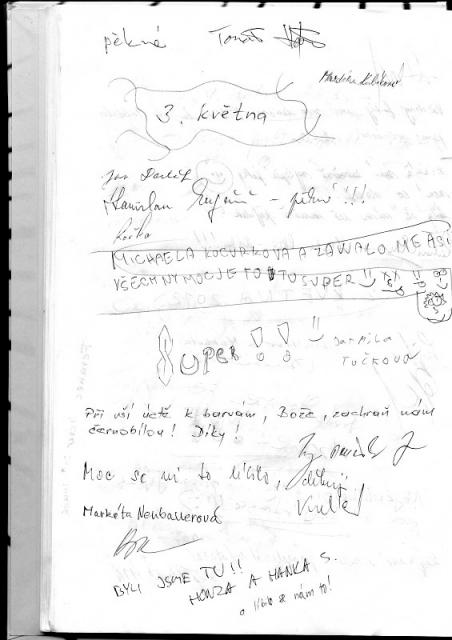 pěkné Tomáš
3. května
Jan
Stanislav – pěkné!!!
MICHAELA KOCURKOVA A ZAVALO ME ASI
VŠECHNY MOC JE TO TU SUPER
SUPER!! JARMILA
TUČKOVA
Při vší úctě k barvám, Bože, zachraň nám
černobílou! Díky!
Moc se mi to líbilo, děkuji
Markéta Neubauerová
BYLI JSME TU!!
HONZA A HANKA S.
a líbilo se nám to!